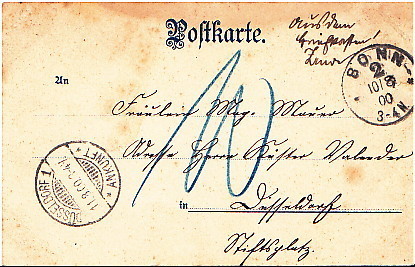 Postkarte.
Aus dem
Briefkasten
BONN
10/8
00
3-4N.
An
Fräulein Mag. Mauer
Adresse Herrn Küster Valender
in Düsseldorf
Stiftsplatz.
10
DÜSSELDORF 1
ANKUNFT